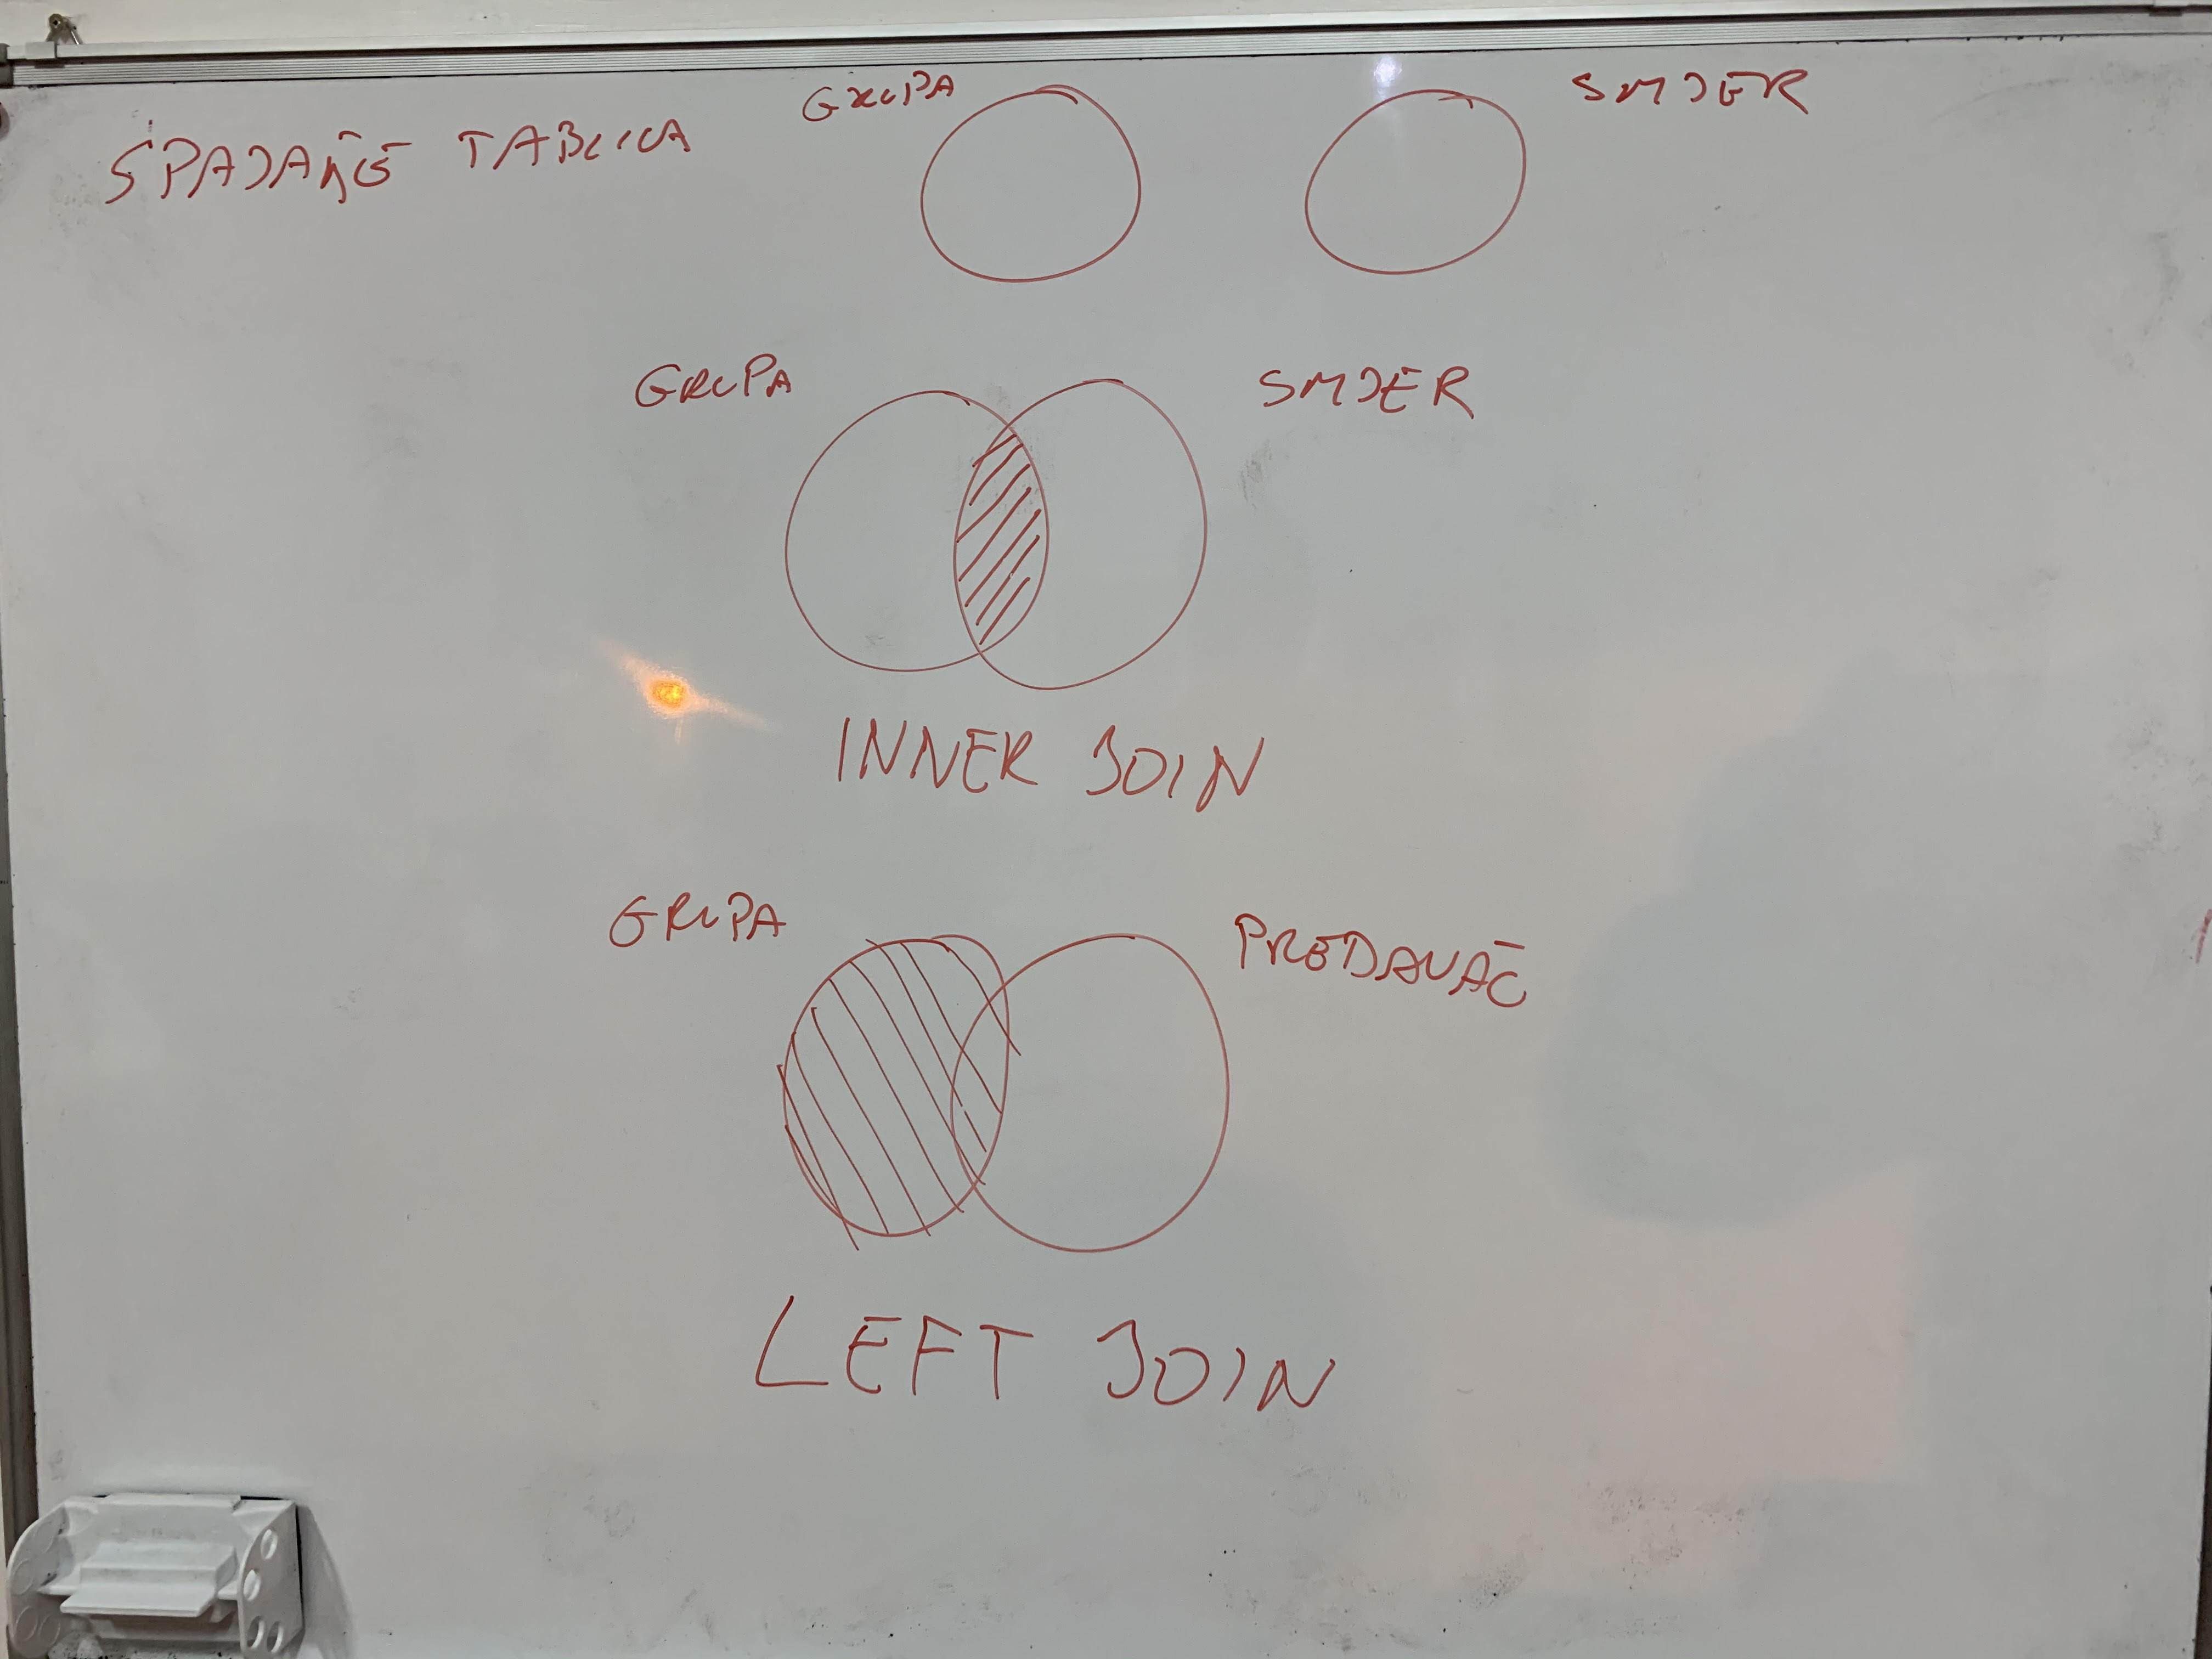 SPAJANJE TABLICA
GRUPA
SMJER
GRUPA
SMJER
INNER JOIN
GRUPA
PREDAVAČ
LEFT JOIN